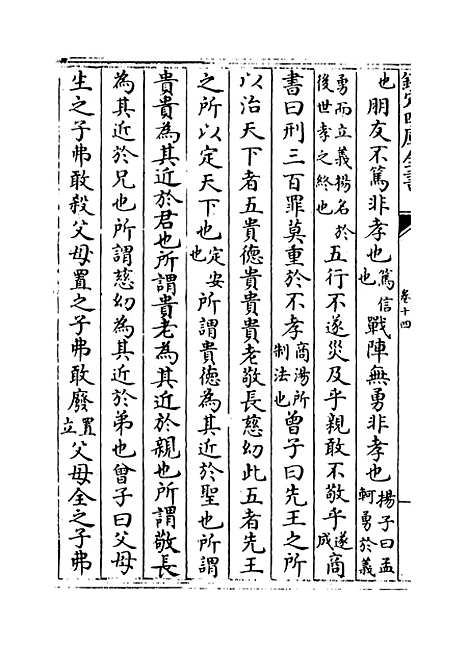 欽定四庫全書 卷十四
也朋友不篤非孝也篤信也戰陣無勇非孝也揚子曰孟軻勇於義
勇而立義揚名於後世孝之終也五行不遂災及乎親敢不敬乎遂成商
書曰刑三百罪莫重於不孝商湯所制法也曾子曰先王之所
以治天下者五貴德貴貴貴老敬長慈幼此五者先王
之所以定天下也定安也所謂貴德為其近於聖也所謂
貴貴為其近於君也所謂貴老為其近於親也所謂敬長
為其近於兄也所謂慈幼為其近於弟也曾子曰父母
生之子弗敢殺父母置之子弗敢廢置立父母全之子弗